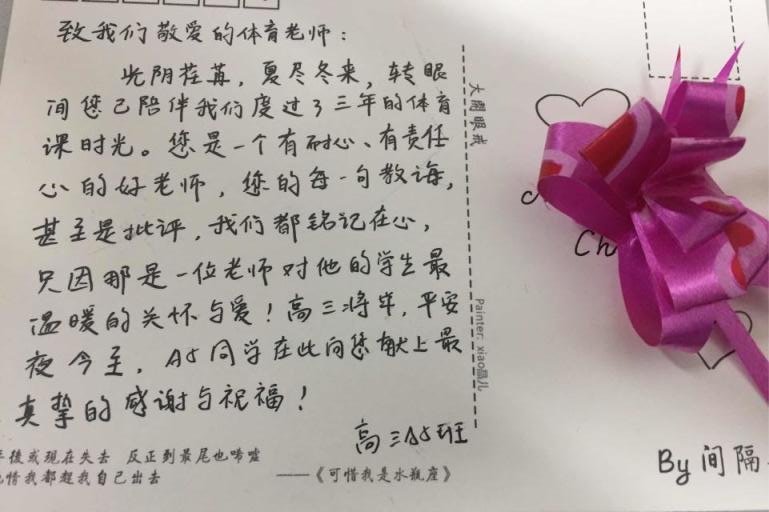 致我们敬爱的体育老师：
光阴荏苒，夏尽冬来，转眼
间您已陪伴我们度过了三年的体育
课时光。您是一个有耐心、有责任
心的好老师，您的每一句教诲，
甚至是批评，我们都铭记在心，
只因那是一位老师对他的学生最
温暖的关怀与爱！高三将毕，平安
夜今至，A5同学在此向您献上最
真挚的感谢与祝福！
高三A5班
後或现在失去 反正到最尾也唏嘘
惜我都趕我自己出去
——《可惜我是水瓶座》
大開眼戒
Painter: xiao晶儿
Ch
By 间隔